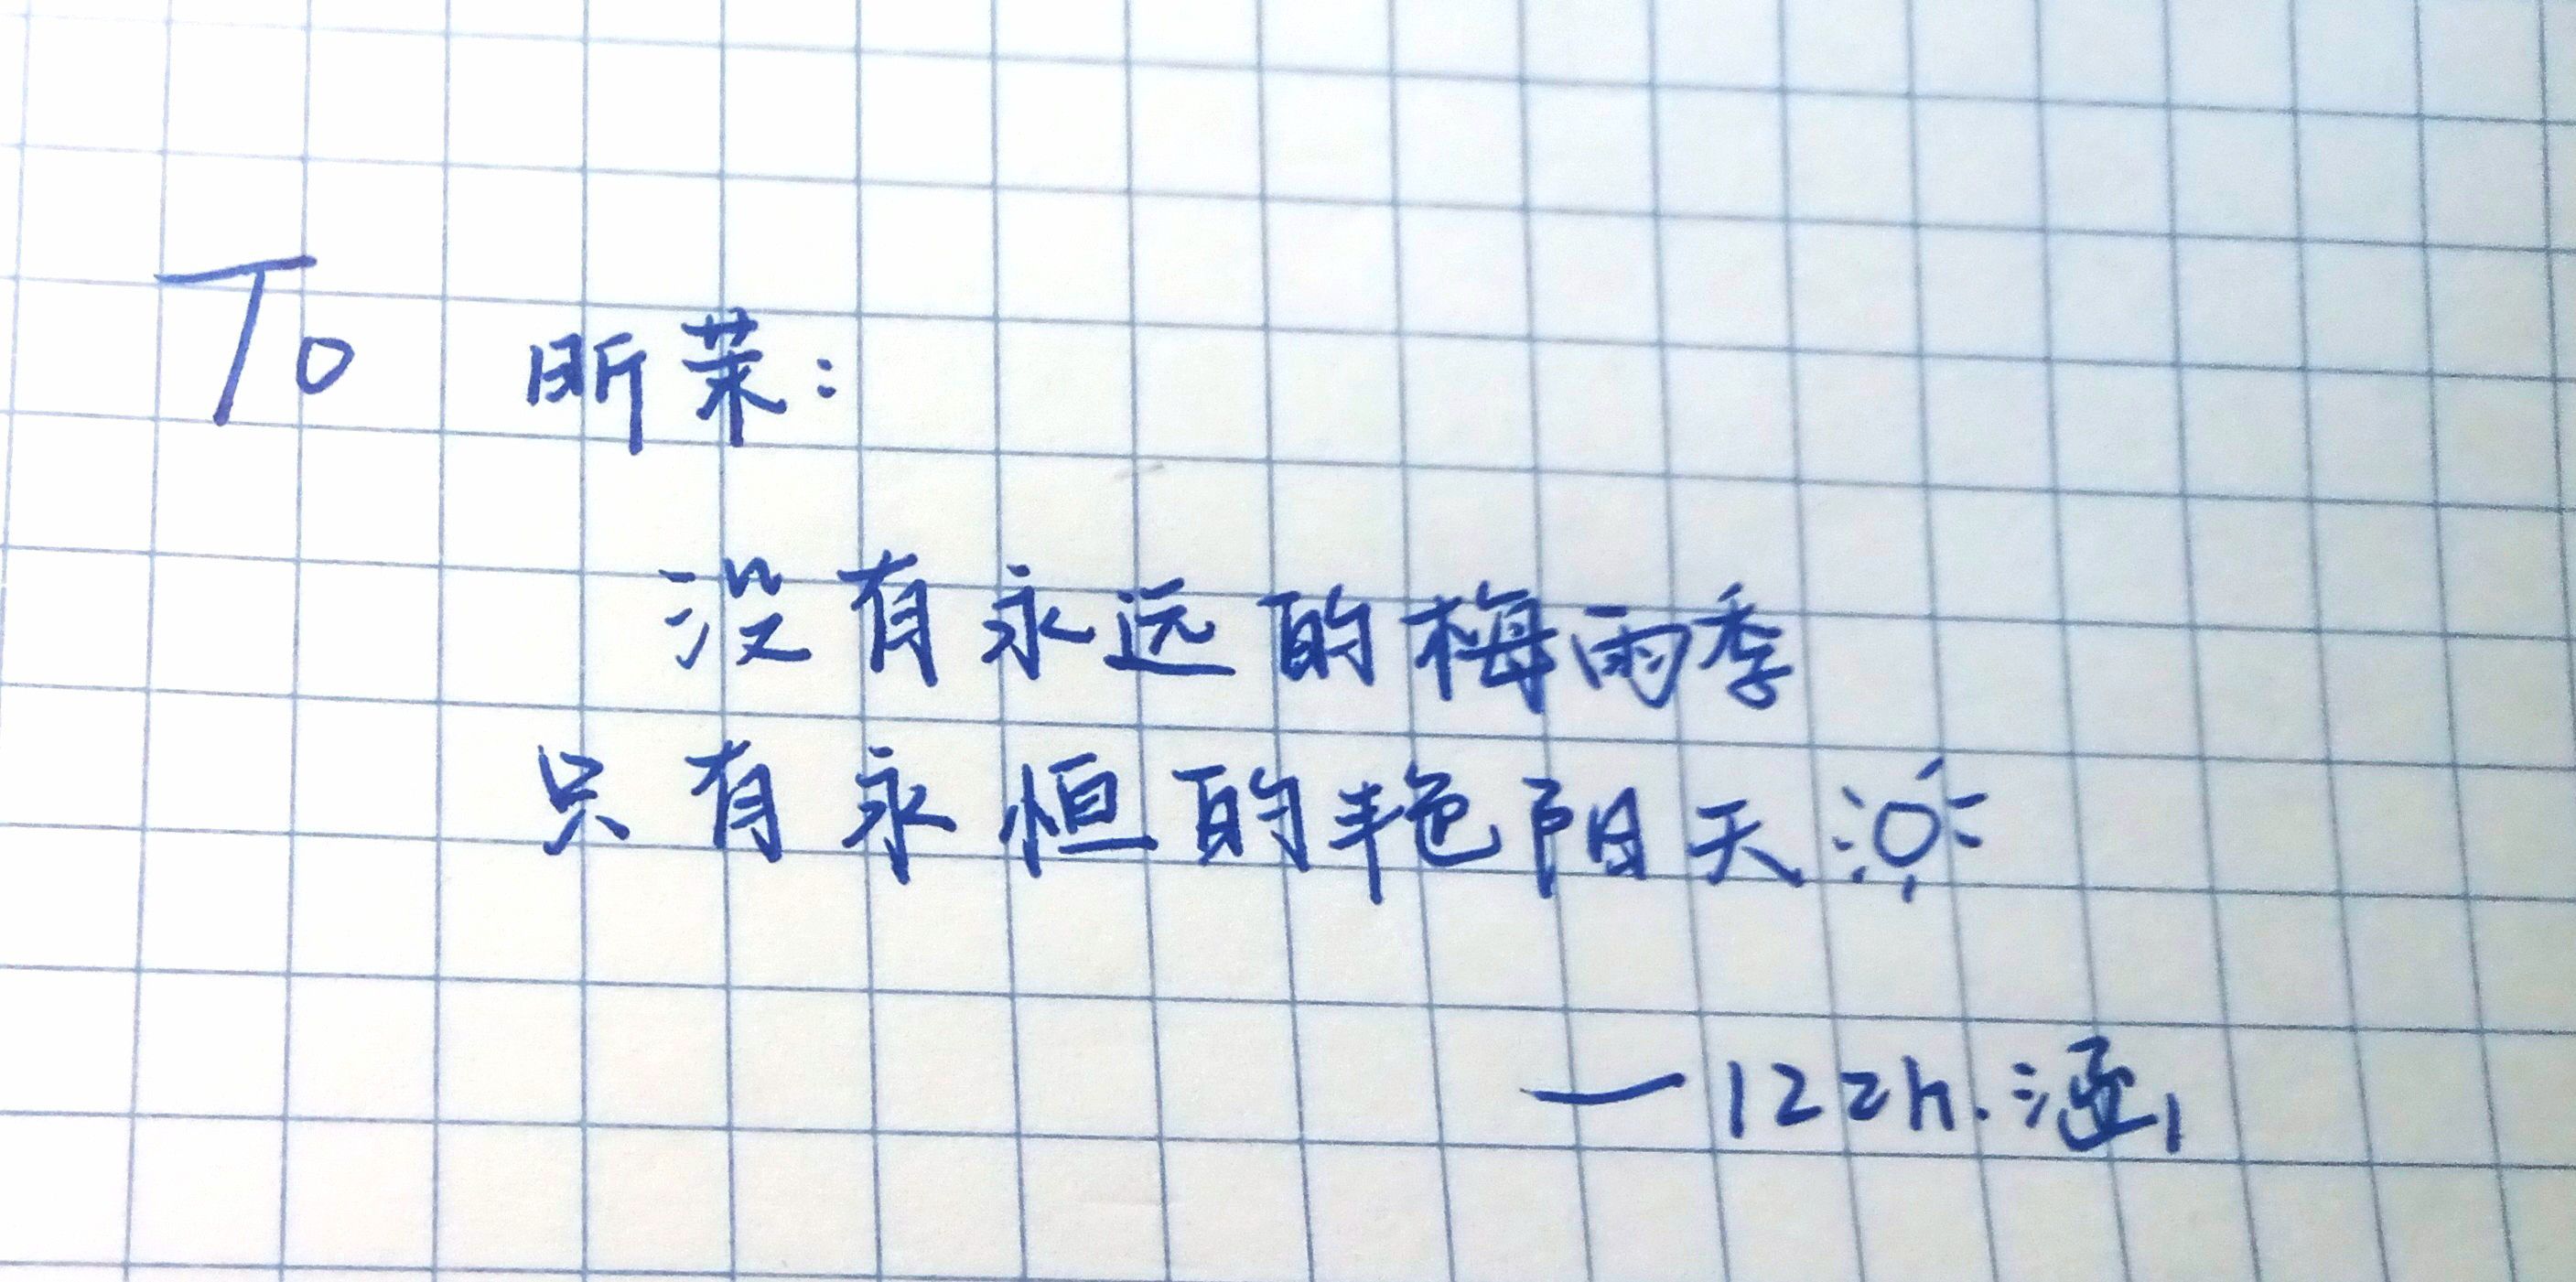 To 昕茉:
没有永远的梅雨季
只有永恒的艳阳天
—122h.涵